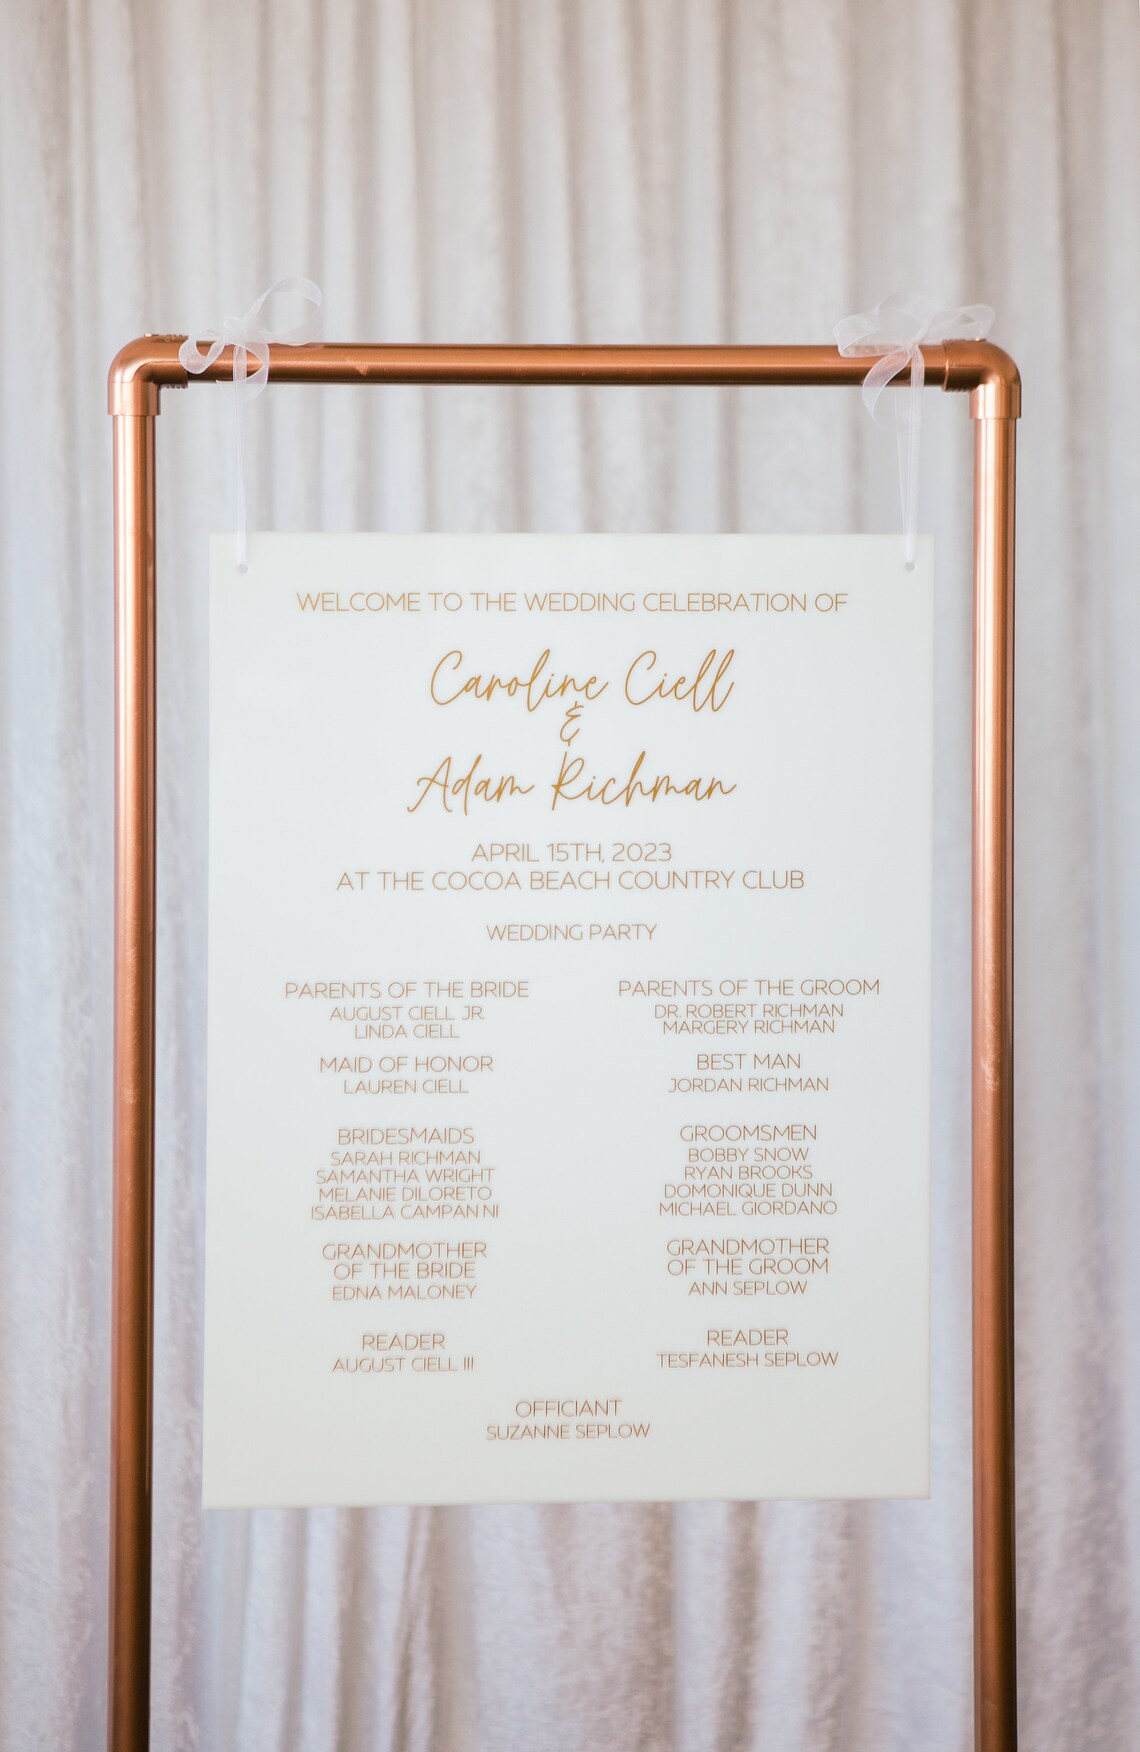 WELCOME TO THE WEDDING CELEBRATION OF
Caroline Ciell
&
Adam Richman
APRIL 15TH, 2023
AT THE COCOA BEACH COUNTRY CLUB
WEDDING PARTY
PARENTS OF THE BRIDE
AUGUST CIELL JR.
LINDA CIELL
MAID OF HONOR
LAUREN CIELL
BRIDESMAIDS
SARAH RICHMAN
SAMANTHA WRIGHT
MELANIE DILORETO
ISABELLA CAMPANNI
GRANDMOTHER
OF THE BRIDE
EDNA MALONEY
READER
AUGUST CIELL III
PARENTS OF THE GROOM
DR. ROBERT RICHMAN
MARGERY RICHMAN
BEST MAN
JORDAN RICHMAN
GROOMSMEN
BOBBY SNOW
RYAN BROOKS
DOMONIQUE DUNN
MICHAEL GIORDANO
GRANDMOTHER
OF THE GROOM
ANN SEPLOW
READER
TESFANESH SEPLOW
OFFICIANT
SUZANNE SEPLOW